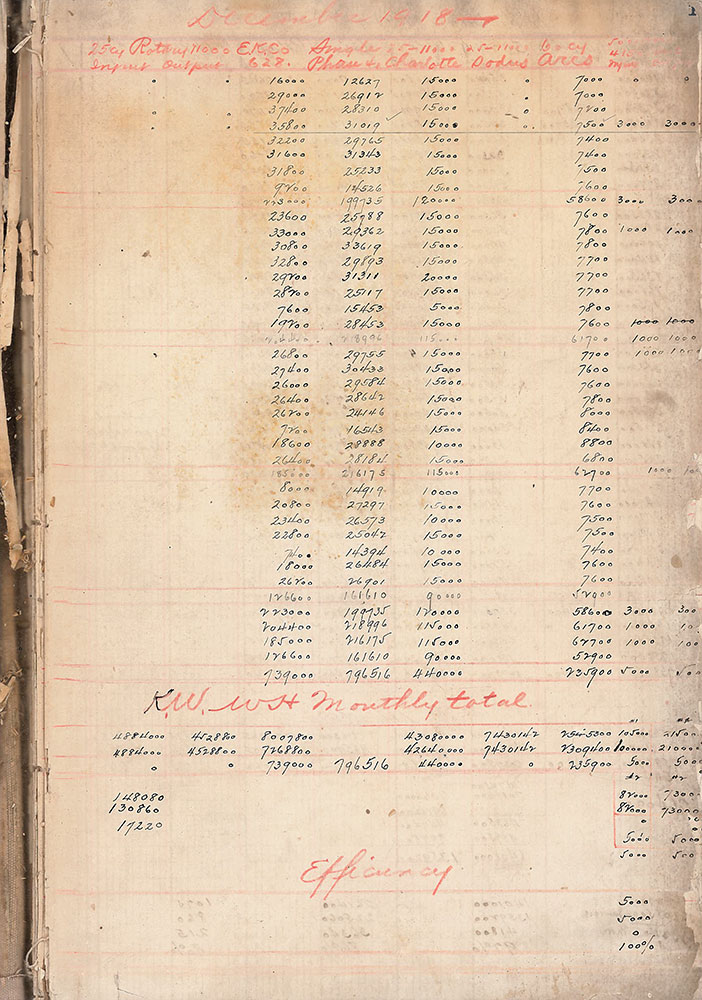 December 1918
1
25cy Rotary 11000 E.K.Co Single 25-11000 25-11000 60 cy
Input Output 628. Phase & Charlotte Dodds Arcs
" " 16000 12627 15000 " 7000 " "
" " 29000 26912 15000 " 7000
" " 37400 28310 15000 " 7200
" " 35800 31019 15000 " 7500 3000 3000
32200 29765 15000 7400
31600 31343 15000 7400
31800 25233 15000 7500
9200 14526 15000 7600
223000 199735 120000 58600 3000 3000
23600 25788 15000 7600
33000 29362 15000 7800 1000 1000
30800 33619 15000 7800
32800 29893 15000 7700
29200 31311 20000 7700
28200 25117 15000 7700
7600 15453 5000 7800
19200 28453 15000 7600 1000 1000
204400 218996 115000 61700 1000 1000
26800 29755 15000 7700 1000 1000
27400 30433 15000 7600
26000 29584 15000 7600
26400 28642 15000 7800
26200 24146 15000 8000
7200 16543 15000 8400
18600 28888 10000 8800
26400 28184 15000 6800
185000 216175 115000 62700 1000
8000 14919 10000 7700
20800 27297 15000 7600
23400 26573 10000 7500
22800 25042 15000 7500
7400 14394 10000 7400
18000 26484 15000 7600
26200 26901 15000 7600
126600 161610 90000 52900
223000 199735 120000 58600 3000 300
204400 218996 115000 61700 1000 100
185000 216175 115000 62700 1000 100
126600 161610 90000 52900
739000 796516 440000 235900 5000 500
K.W. WH Monthly total
4884000 4528800 8007800 4308000 7430142 2545300 105000 215000
4884000 4528800 7268800 42640000 7430142 2309400 100000 210000
0 0 739000 796516 440000 0 235900 5000 5000
148080 82000 73000
130860 82000 73000
17220 "
5000 5000
5000 500
Efficiency
5000
5000
0
100%